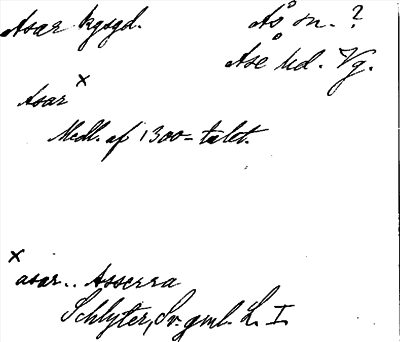 Asar kgsgd.
Ås sn. ?
Åse hd. Vg.
Asar x
Medl. af 1300-talet.
x asar.. Asserra
Schlyter, Sv. gml. L. I